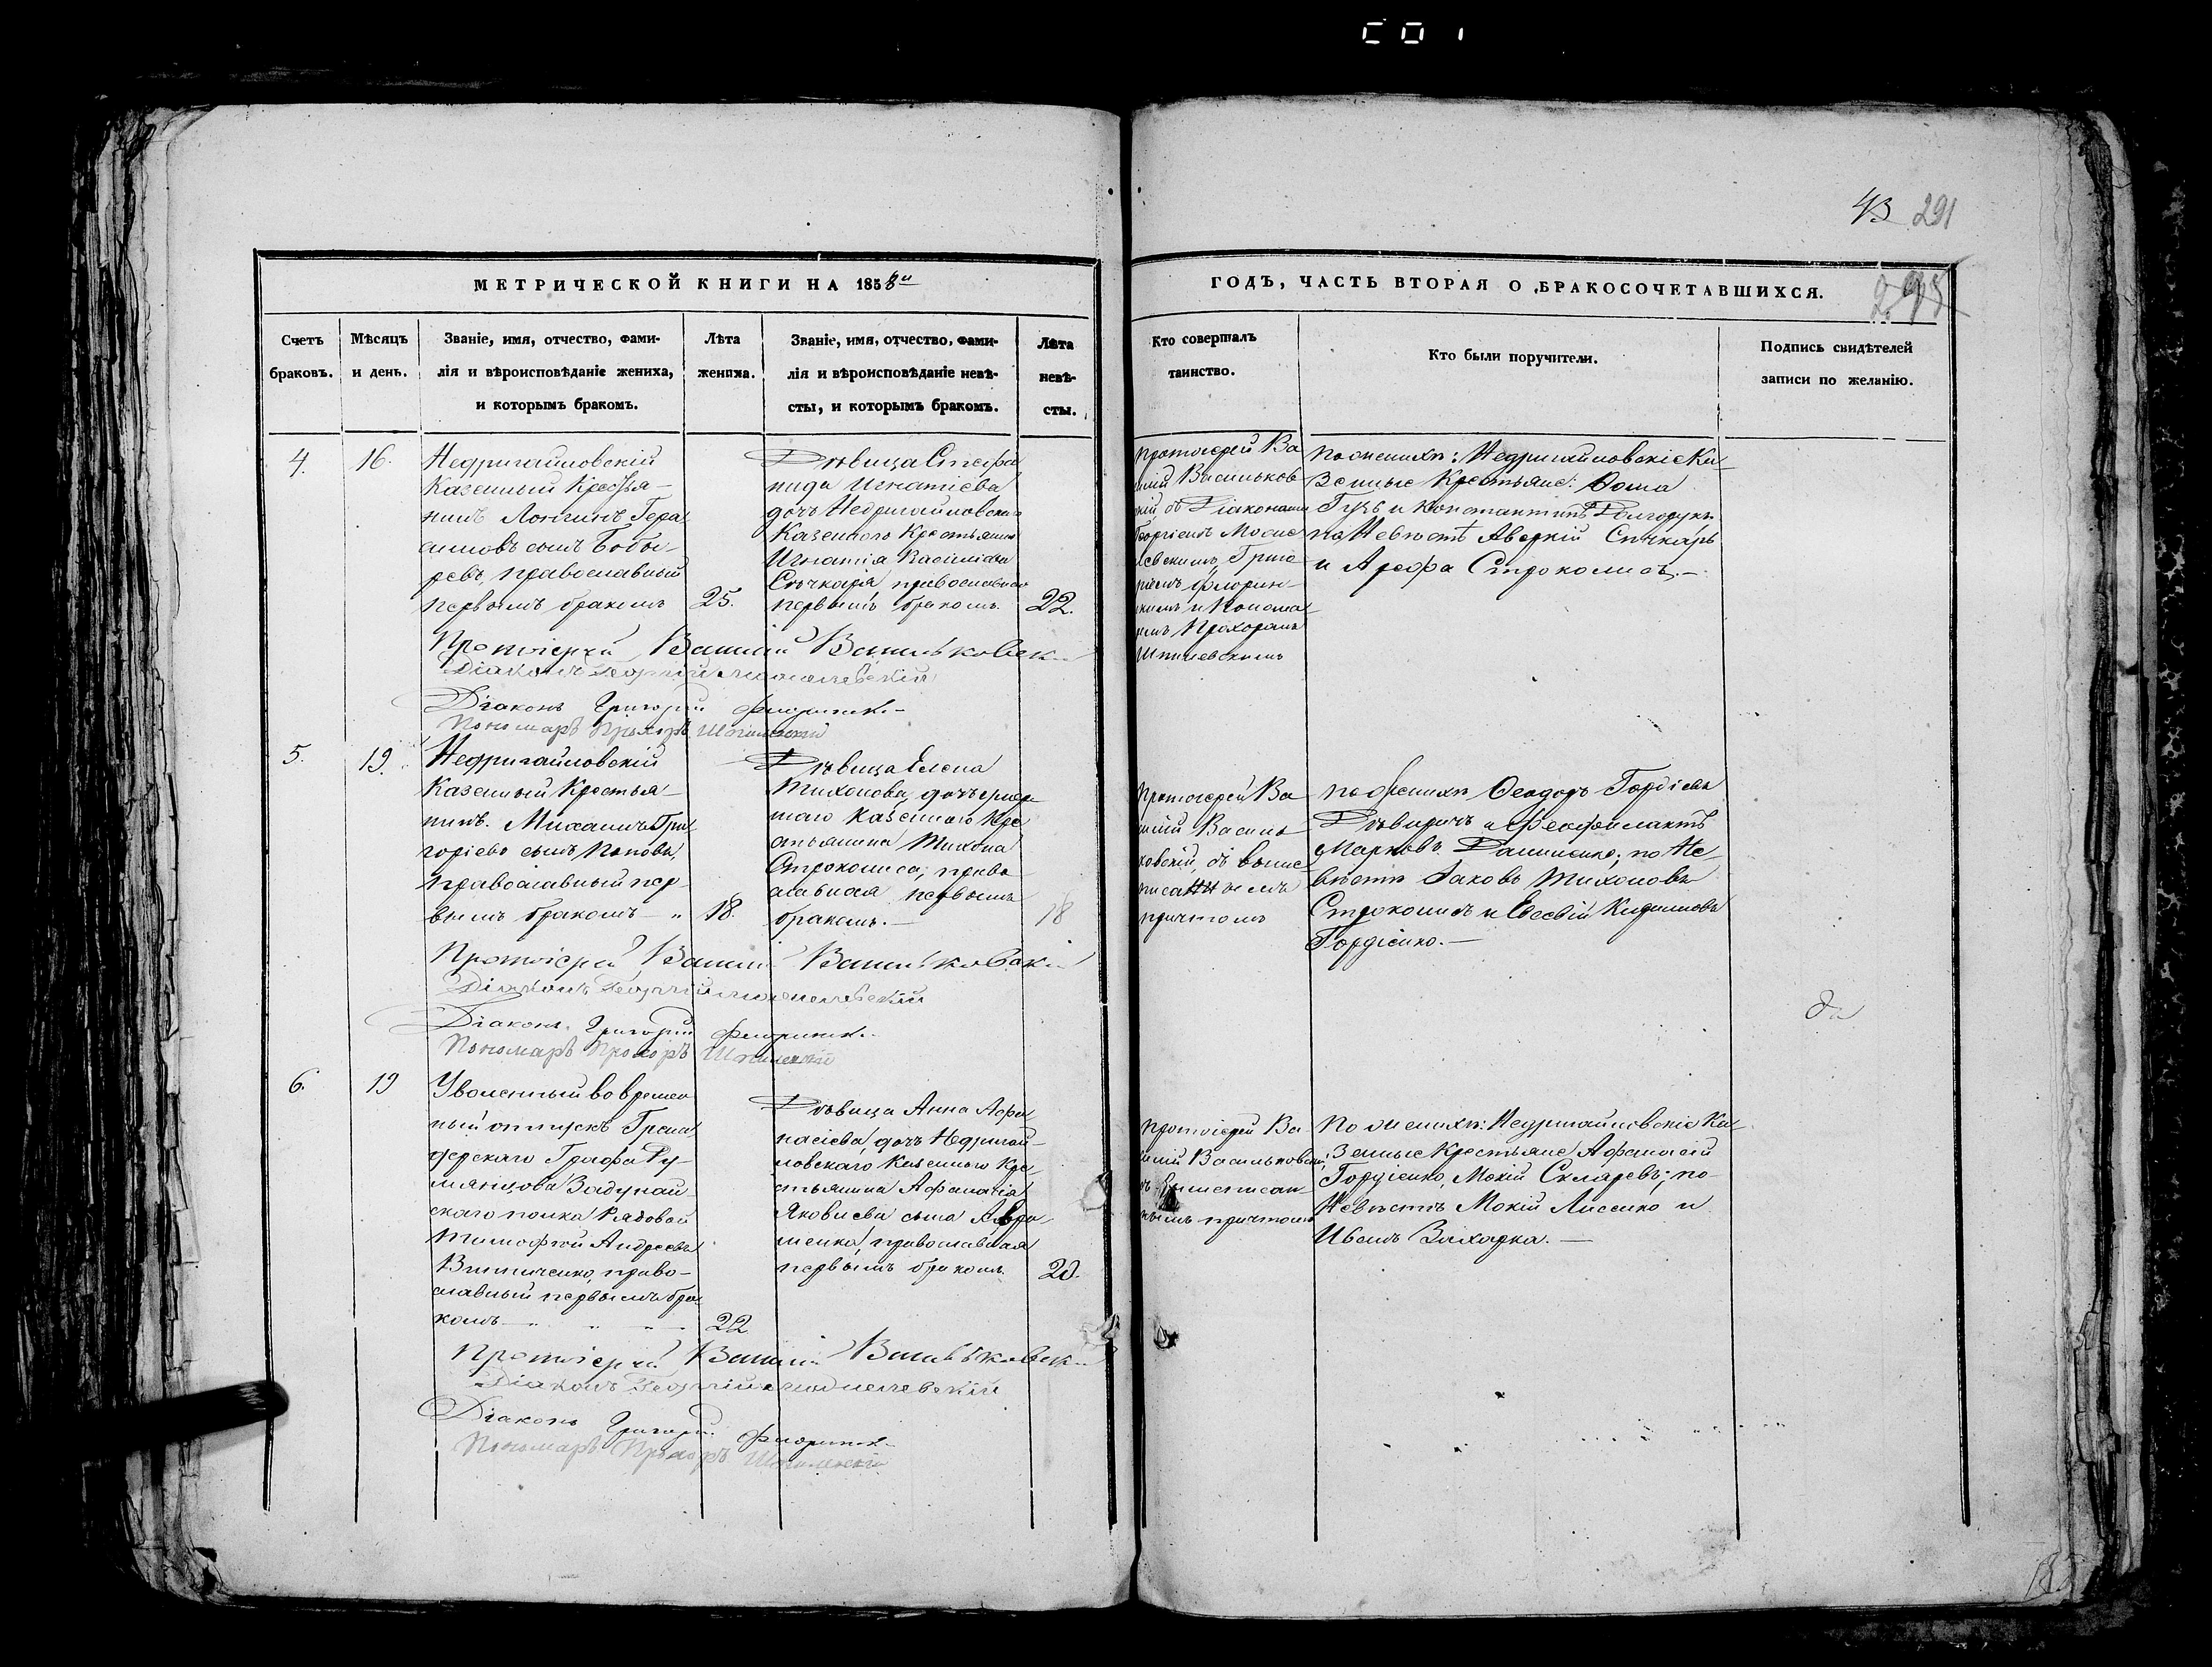 43 291
МЕТРИЧЕСКОЙ КНИГИ НА 1858й
ГОДЪ, ЧАСТЬ ВТОРАЯ О БРАКОСОЧЕТАВШИХСЯ.
295
Счетъ браковъ.
Мѣсяцъ и день.
Званіе, имя, отчество, фами-
лія и вѣроисповѣданіе жениха,
и которымъ бракомъ.
Лѣта жениха.
Званіе, имя, отчество, фами-
лія и вѣроисповѣданіе невѣ-
сты, и которымъ бракомъ.
Лѣта невѣ-
сты.
Кто совершалъ
таинство.
Кто были поручители.
Подпись свидѣтелей
записи по желанію.
4. 16.
Недригайловскій
Казенный Крестья-
нинъ Лонгинъ Гера
симовъ сынъ Бобы-
ревъ, православный
первымъ бракомъ 25.
Дѣвица Стефа
нида Игнатіева
дочь Недригайловскаго
Казенного Крестьянина
Игнатія Василіева
Спѣчкаря, православная
первымъ бракомъ. 22.
Протоіерей Ва
силій Васильков
скій съ Діаконами
Георгіемъ Мосце
левскимъ, Григо
ріемъ Флорин-
скимъ и Понома
ремъ Прохоромъ
Шпилевскимъ
По женихѣ: Недригайловскіе Ка-
зенные Крестьяне: Фома
Гузь и Константинъ Долгорукъ
по Невѣстѣ Аверкій Спѣчкарь
и Арефа Строколисъ.—
Протоіерей Василій Васильковскій
Діаконъ Георгій
Діаконъ Григорій Флоринск.
Пономарь Прохоръ Шпилевскій
5. 19.
Недригайловскій
Казенный Крестья-
нинъ. Михаилъ Гри
горіевъ сынъ Поповъ,
православный пер-
вымъ бракомъ— 18.
Дѣвица Елена
Тихонова, дочь умер
шаго Казенного Кре
стьянина Тихона
Строколиса, право
славная первымъ
бракомъ.— 18
Протоіерей Ва
силій Василь
ковскій, съ выше
писаннымъ
причтомъ
по Женихѣ Феодоръ Гордіевъ
и Феофилактъ
Марковъ Даниленко; по Не-
вѣстѣ Іаковъ Тихоновъ
Строколисъ и Евсевій
Гордіенко.—
Протоіерей Василій Васильковскій
Діаконъ Георгій
Діаконъ Григорій Флоринск.
Пономарь Прохоръ Шпилевскій
6. 19
Уволенный во времен
ный отпускъ Грена
дерскаго Графа Ру-
мянцова Задунай
скаго полка Рядовой
Тимофѣй Андреевъ
Винниченко, право-
славный первымъ бра
комъ— 22
Дѣвица Анна Афа
насіева, дочь Недригай-
ловскаго Казенного Кре-
стьянина Афанасія
Яковлева сына Авра-
менка, православная
первымъ бракомъ. 20.
Протоіерей Ва
силій Васильковскій,
съ вышеписан-
нымъ причтомъ
По женихѣ: Недригайловскіе Ка-
зенные Крестьяне Афанасій
Гордіенко, Мокій Скляревъ; по-
Невѣстѣ Мокій Лисенко и
Иванъ Захарка.—
Протоіерей Василій Васильковскій
Діаконъ Георгій
Діаконъ Григорій Флоринск.
Пономарь Прохоръ Шпилевскій